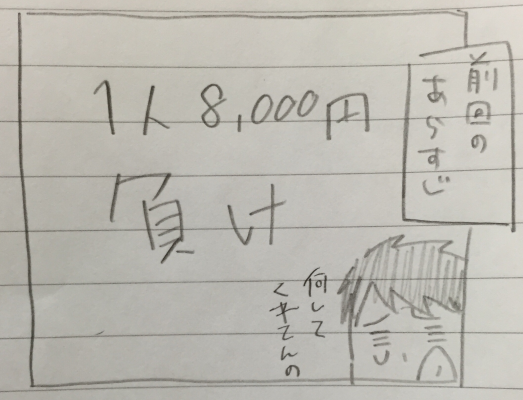 前回の
あらすじ
1人 8,000円
負け
何して
くれてんの